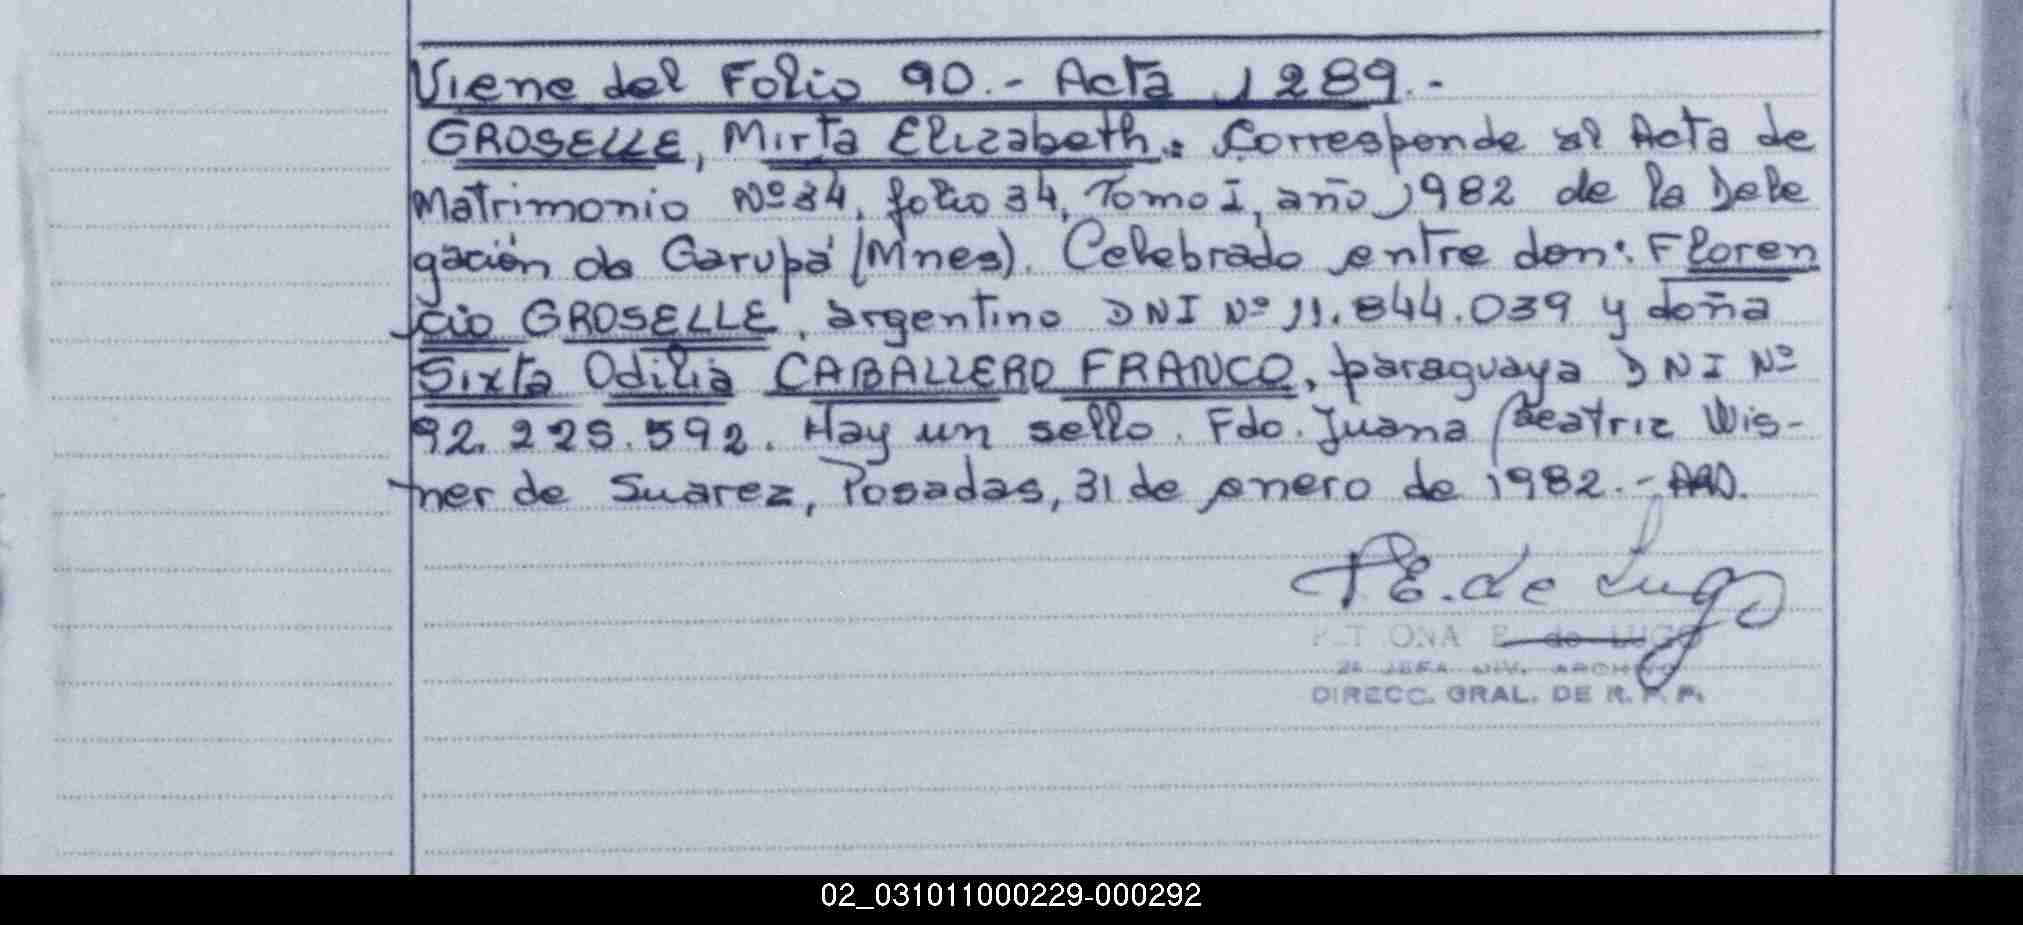 Viene del Folio 90.- Acta 1289.-
GROSELLE, Mirta Elizabeth: Corresponde al Acta de
Matrimonio Nº 34, folio 34, Tomo I, año 1982 de la Dele
gación de Garupá (Mnes). Celebrado entre don: Floren
cio GROSELLE, argentino DNI Nº 11.844.039 y doña
Sixta Odilia CABALLERO FRANCO, paraguaya DNI Nº
92.225.592. Hay un sello. Fdo. Juana Beatriz Wis-
ner de Suarez, Posadas, 31 de enero de 1982.-
P E. de Lugo
E. de LUGO
2a JEFA DIV. ARCHIVO
DIRECC. GRAL. DE R. P. P.
02_031011000229-000292